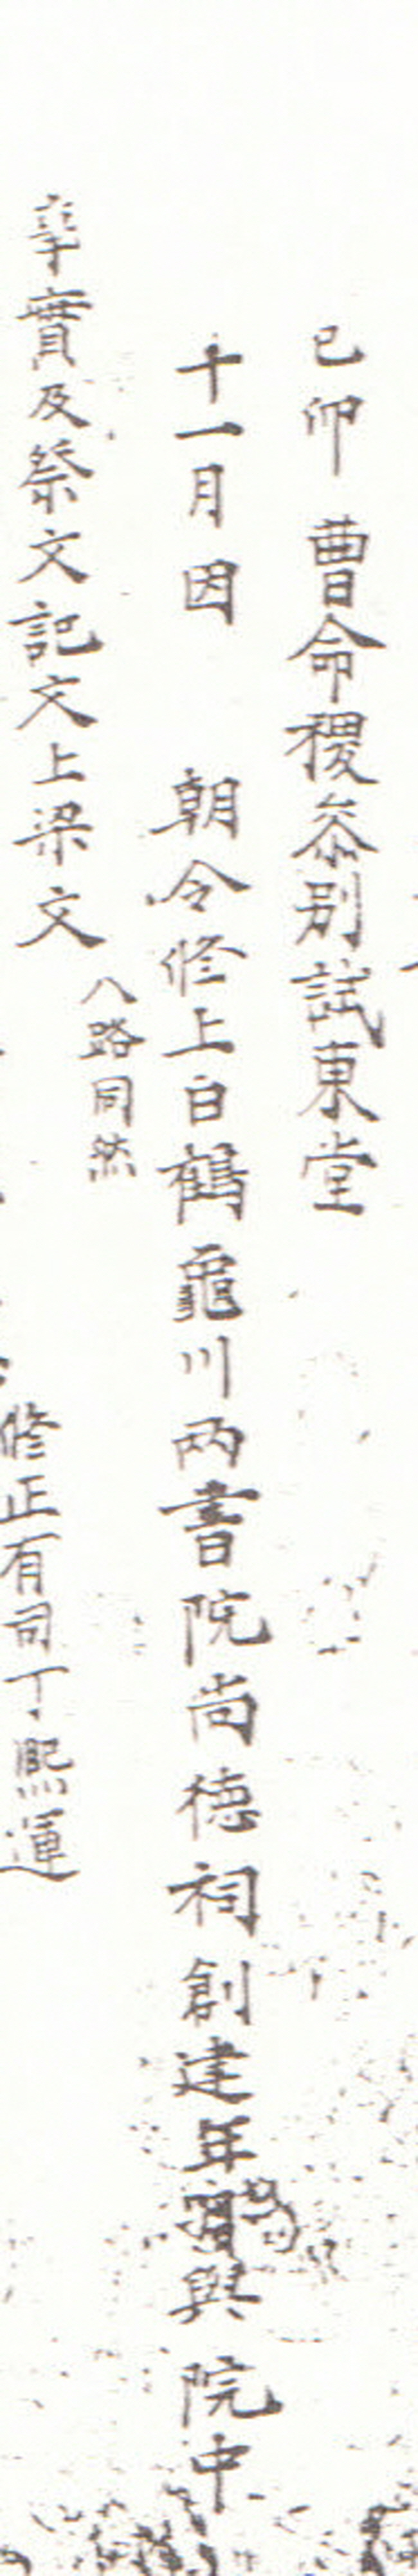 己卯 曺命稷叅別試東堂
十一月因 朝令修上白鶴龜川兩書院尚德祠創建年與院中
事實及祭文記文上梁文 八路同然
修正有司丁熙運